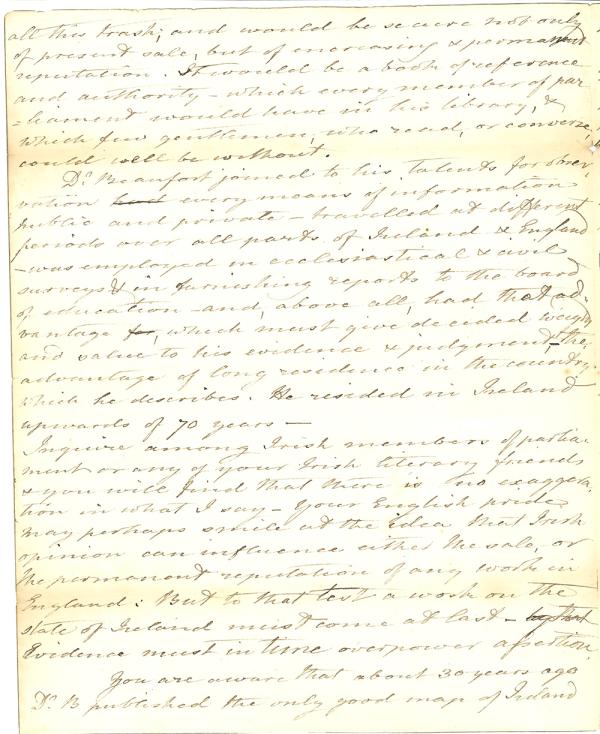 all this trash; and would be secure not only
of present sale, but of encreasing & permanent
reputation. It would be a book of reference
and authority - which every member of par
=liament would have in his library, &
which few gentlemen, who read, or converse,
could well be without.
Dr. Beaufort joined to his talents for obser
vation had every means of information
public and private - travelled at different
periods over all parts of Ireland & England
- was employed in ecclesiastical & civil
surveys & in furnishing reports to the board
of education - and, above all, had that ad-
vantage for, which must give decided weight
and value to his evidence & judgment, - the
advantage of long residence in the country
which he describes. He resided in Ireland
upwards of 70 years -
Inquire among Irish members of parlia-
ment or any of your Irish literary friends
& you will find that there is no exaggera
tion in what I say - Your English pride
may perhaps smile at the idea that Irish
opinion can influence either the sale, or
the permanent reputation of any work in
England: But to that test a work on the
state of Ireland must come at last -
Evidence must in time overpower assertion.
You are aware that about 30 years ago
Dr. B published the only good map of Ireland